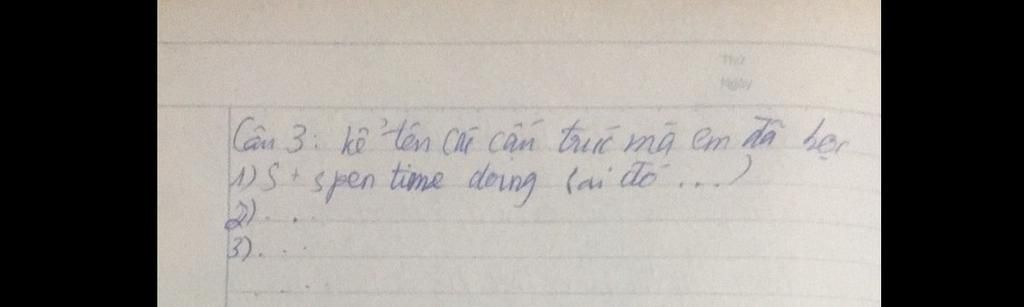 Thứ
Ngày
Câu 3: kể tên các cấu trúc mà em đã học
1) S + spen time doing (ai đó ...)
2) ...
3) ...